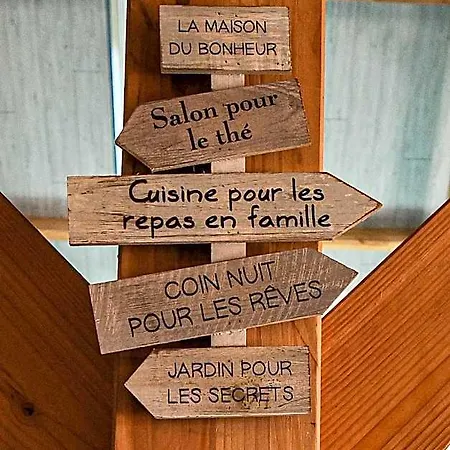 LA MAISON
DU BONHEUR
Salon pour
le thé
Cuisine pour les
repas en famille
COIN NUIT
POUR LES RÊVES
JARDIN POUR
LES SECRETS